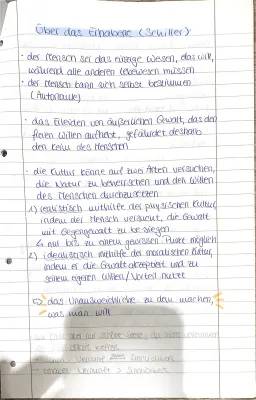 Über das Erhabene (Schiller)
· der Mensch sei das einzige Wesen, das will,
während alle anderen Lebewesen müssen
· der Mensch kann sich selbst bestimmen
(Autonomie)
· das Erleiden von äußerlichen Gewalt, das den
freien Willen aufhebt, gefährdet deshalb
den Kern des Menschen
· die Kultur könne auf zwei Arten versuchen,
die Natur zu beherrschen und den Willen
des Menschen durchzusetzen
1) realistisch mithilfe der physischen Kultur,
indem der Mensch versucht, die Gewalt
mit Gegengewalt zu besiegen
↳ nur bis zu einem gewissen Punkt möglich
2) idealistisch mithilfe der moralischen Kultur,
indem er die Gewalt akzeptiert und zu
seinem eigenen Willen/Vorteil nutzt
⇨ das Unausweichliche zu dem machen,
was man will
Vernunft Sinnlichkeit
Vernunft > Sinnlichkeit